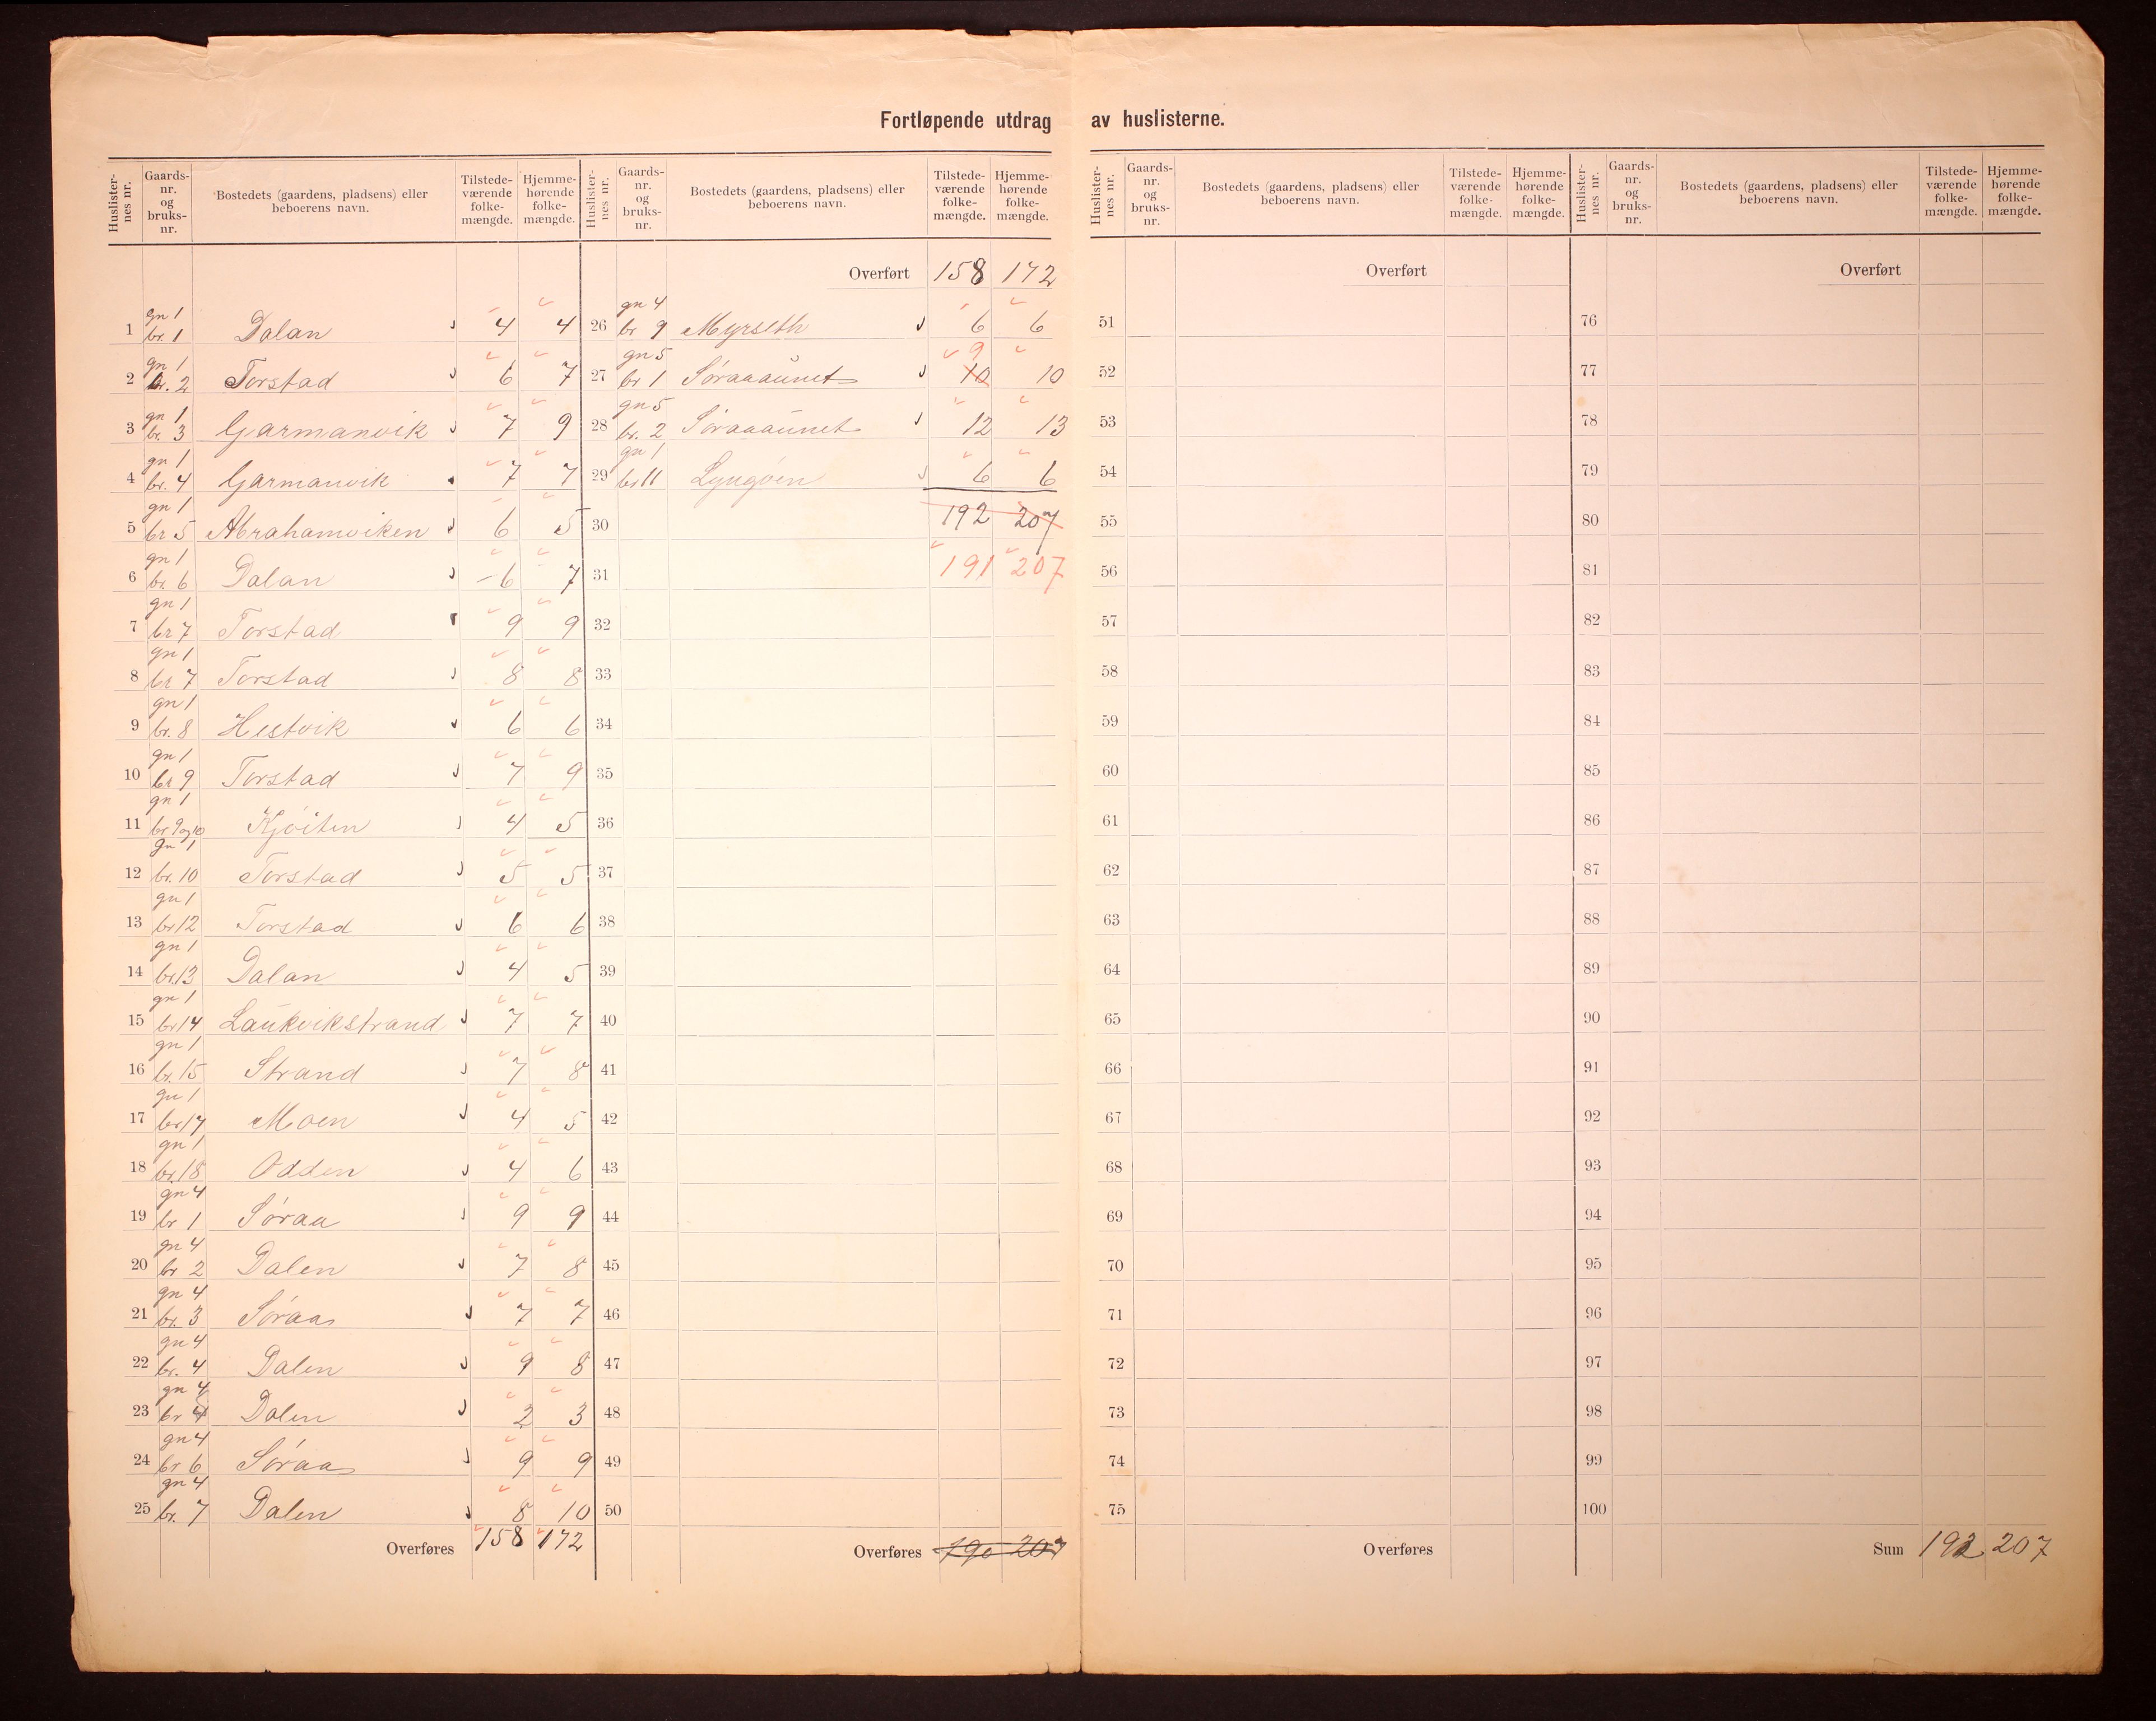 Fortløpende utdrag av huslisterne.
Huslisternes nr. Gaards-nr. og bruks-nr. Bostedets (gaardens, pladsens) eller beboerens navn. Tilstede-værende folke-mængde. Hjemme-hørende folke-mængde.
1 gn 1 br. 1 Dalan 4 4
2 gn 1 br. 2 Torstad 6 7
3 gn 1 br. 3 Garmanvik 7 9
4 gn 1 br. 4 Garmanvik 7 7
5 gn 1 br 5 Abrahamviken 6 5
6 gn 1 br. 6 Dalan 6 7
7 gn 1 br 7 Torstad 9 9
8 gn 1 br 7 Torstad 8 8
9 gn 1 br. 8 Hestvik 6 6
10 gn 1 br 9 Torstad 7 9
11 gn 1 br 9 og 10 Kjøiten 4 5
12 gn 1 br. 10 Torstad 5 5
13 gn 1 br 12 Torstad 6 6
14 gn 1 br. 13 Dalan 4 5
15 gn 1 br 14 Laukvikstrand 7 7
16 gn 1 br. 15 Strand 7 8
17 gn 1 br 17 Moen 4 5
18 gn 1 br. 18 Odden 4 6
19 gn 4 br 1 Søraa 9 9
20 gn 4 br 2 Dalen 7 8
21 gn 4 br. 3 Søraa 7 7
22 gn 4 br. 4 Dalen 9 8
23 gn 4 br Dalen 2 3
24 gn 4 br 6 Søraa 9 9
25 gn 4 br. 7 Dalen 8 10
Overføres 158 172
Huslisternes nr. Gaards-nr. og bruks-nr. Bostedets (gaardens, pladsens) eller beboerens navn. Tilstede-værende folke-mængde. Hjemme-hørende folke-mængde.
Overført 158 172
26 gn 4 br 9 Myrseth 6 6
9
27 gn 5 br 1 Søraaaunet 10 10
28 gn 5 br. 2 Søraaaunet 12 13
29 gn 1 br 11 Lyngøen 6 6
30 192 207
31 191 207
32
33
34
35
36
37
38
39
40
41
42
43
44
45
46
47
48
49
50
Overføres 190 207
Huslisternes nr. Gaards-nr. og bruks-nr. Bostedets (gaardens, pladsens) eller beboerens navn. Tilstede-værende folke-mængde. Hjemme-hørende folke-mængde.
Overført
51
52
53
54
55
56
57
58
59
60
61
62
63
64
65
66
67
68
69
70
71
72
73
74
75
Overføres
Huslisternes nr. Gaards-nr. og bruks-nr. Bostedets (gaardens, pladsens) eller beboerens navn. Tilstede-værende folke-mængde. Hjemme-hørende folke-mængde.
Overført
76
77
78
79
80
81
82
83
84
85
86
87
88
89
90
91
92
93
94
95
96
97
98
99
100
Sum 192 207